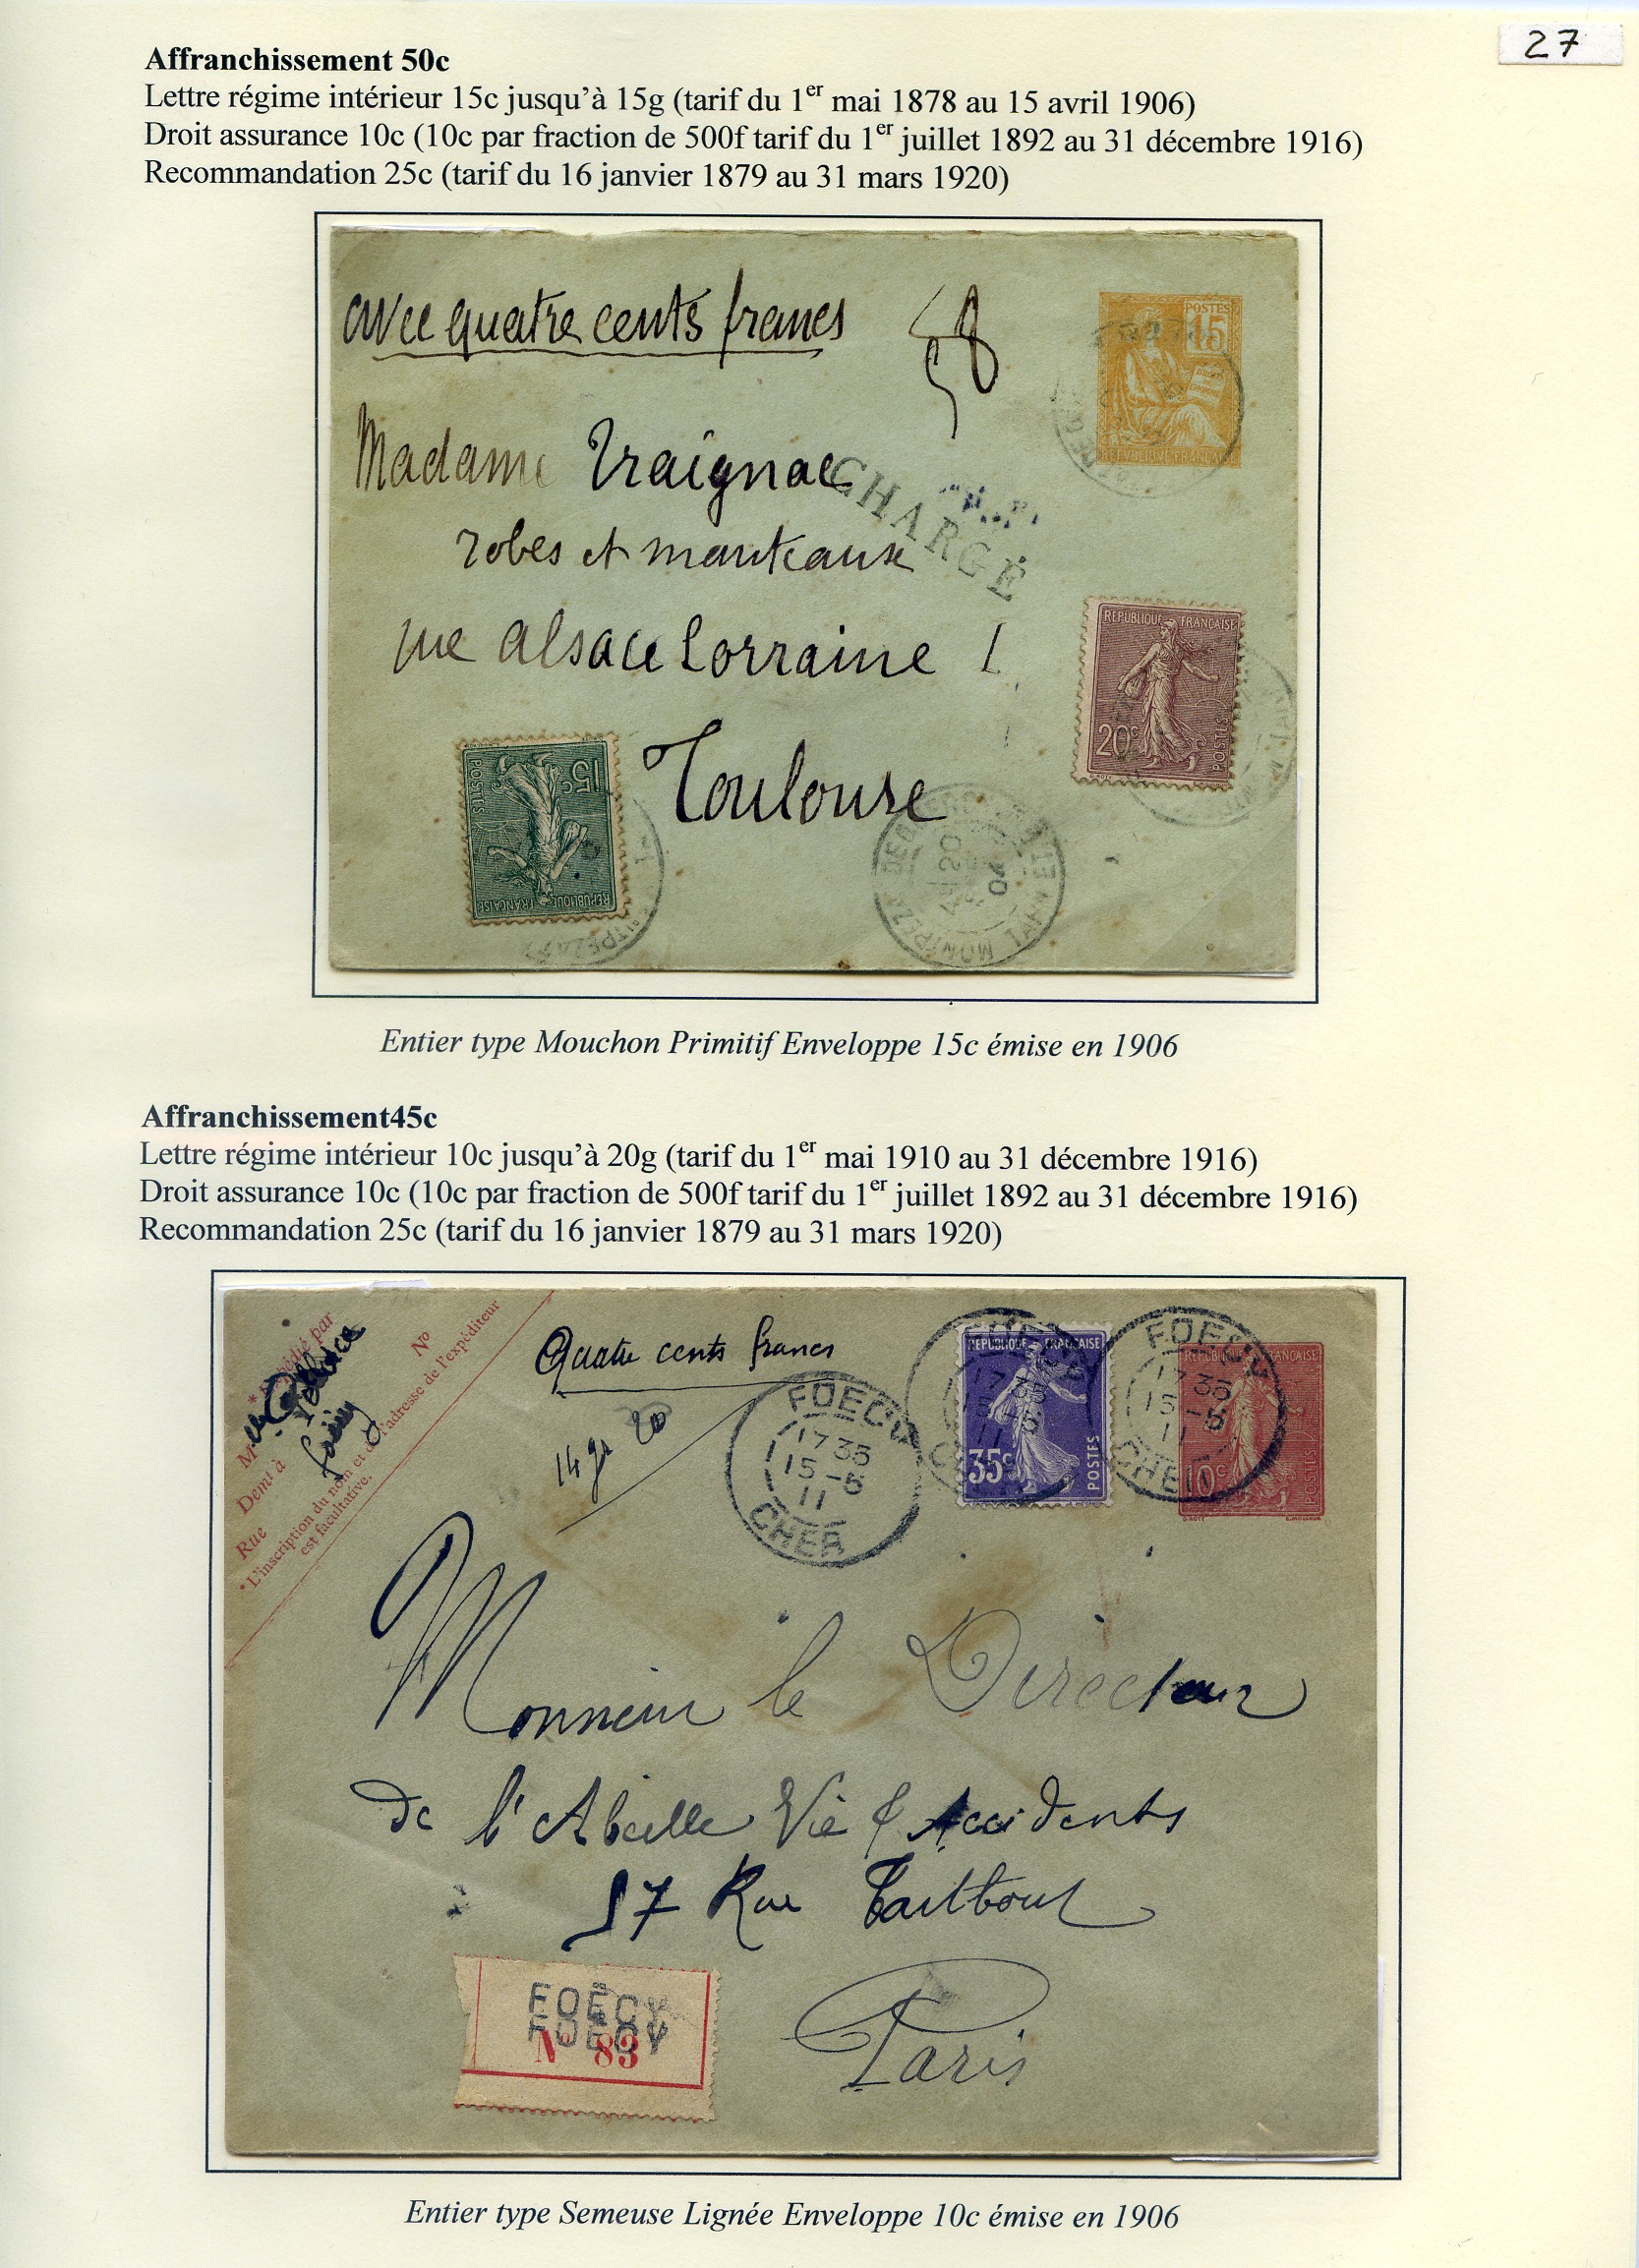 27
Affranchissement 50c
Lettre régime intérieur 15c jusqu'à 15g (tarif du 1er mai 1878 au 15 avril 1906)
Droit assurance 10c (10c par fraction de 500f tarif du 1er juillet 1892 au 31 décembre 1916)
Recommandation 25c (tarif du 16 janvier 1879 au 31 mars 1920)
avec quatre cents francs
58
POSTES
15
REPVBLIQVE FRANÇAISE
Madame Traignac
CHARGÉ
robes et manteaux
rue alsace Lorraine
REPUBLIQUE FRANÇAISE
20c
POSTES
Toulouse
REPUBLIQUE FRANÇAISE
15c
POSTES
MONTPEZAT
TARN ET
20
04
Entier type Mouchon Primitif Enveloppe 15c émise en 1906
Affranchissement45c
Lettre régime intérieur 10c jusqu'à 20g (tarif du 1er mai 1910 au 31 décembre 1916)
Droit assurance 10c (10c par fraction de 500f tarif du 1er juillet 1892 au 31 décembre 1916)
Recommandation 25c (tarif du 16 janvier 1879 au 31 mars 1920)
*Expédié par
M
Demt à
Rue
No
*L'inscription du nom et de l'adresse de l'expéditeur
est facultative.
Quatre cents francs
14 gr 20
FOECY
17 35
15 -5
11
CHER
REPUBLIQUE FRANÇAISE
35c
POSTES
FOECY
17 35
15 -5
11
CHER
REPUBLIQUE FRANÇAISE
10c
POSTES
Monsieur le Directeur
de l'Abeille Vie & Accidents
57 Rue Taitbout
Paris
FOËCY
FOËCY
No 83
Entier type Semeuse Lignée Enveloppe 10c émise en 1906